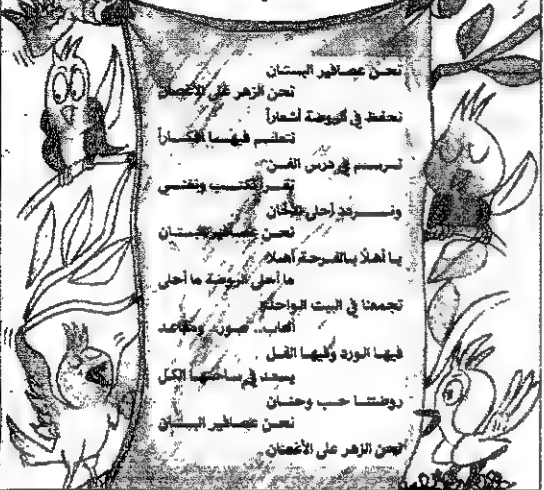 نحن عصافير البستان
نحن الزهر على الأغصان
نحفظ في الروضة أشعاراً
نتعلم فيها أفكاراً
نرسم في درس الفن
نقرأ نكتب ونغني
ونردد أحلى الألحان
نحن عصافير البستان
يا أهلاً بالفرحة أهلا
ما أحلى الروضة ما أحلى
تجمعنا في البيت الواحد
ألعاب.. صور.. ومقاعد
فيها الورد وفيها الفل
يسعد في ساحتها الكل
روضتنا حب وحنان
نحن عصافير البستان
نحن الزهر على الأغصان